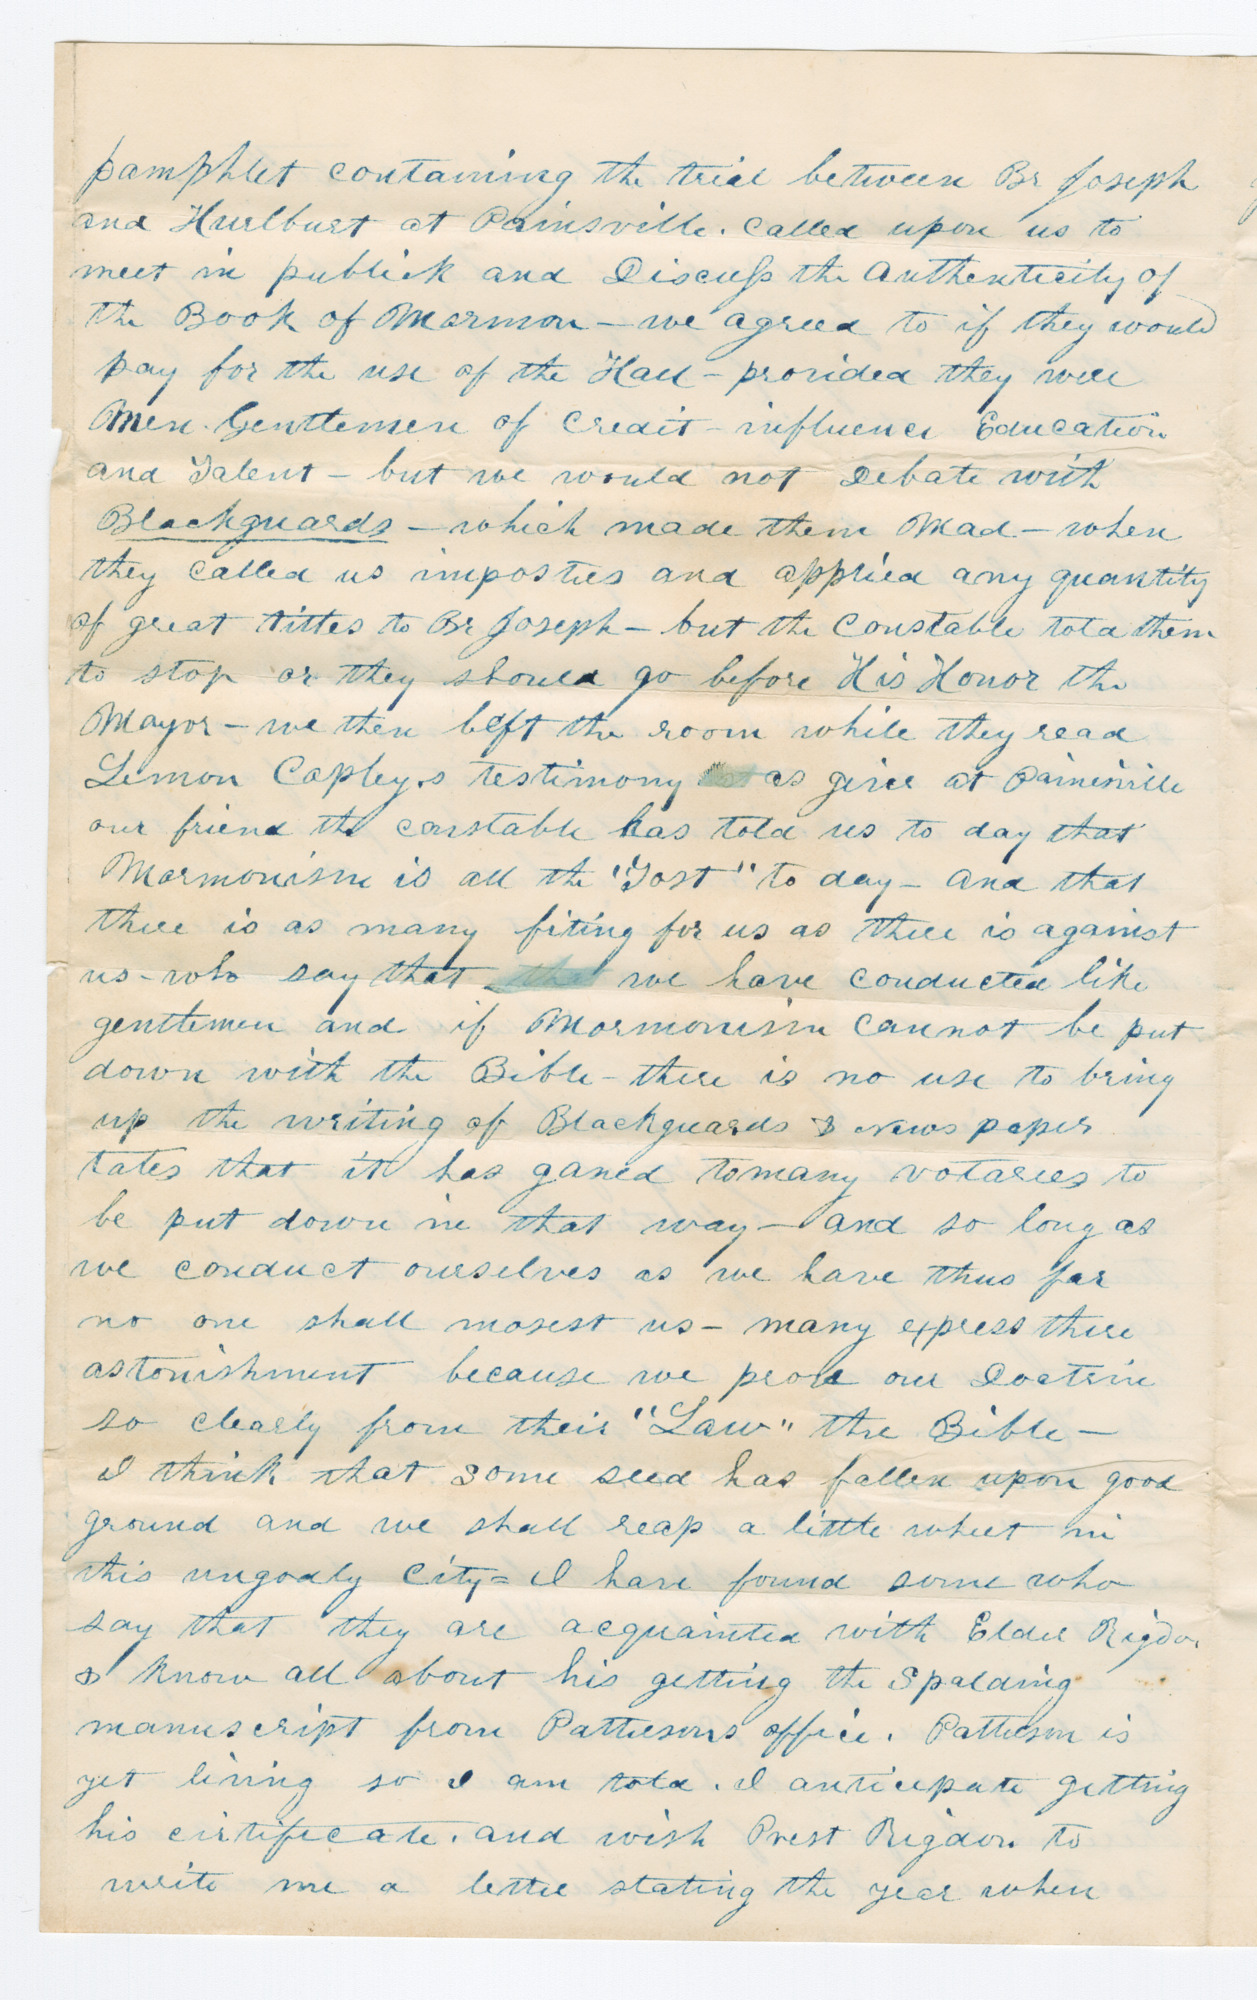 pamphlet containing the trial between Br Joseph
and Hurlburt at Painsville. Called upon us to
meet in publick and Discuss the Authenticity of
the Book of Mormon — we agreed to if they would
pay for the use of the Hall — provided they were
Men. Gentlemen of Credit — influence Education
and Talent — but we would not Debate with
Blackguards — which made them Mad — when
they called us imposters and applied any quantity
of great tittles to Br Joseph — but the Constable told them
to stop or they should go before His Honor the
Mayor — we then left the room while they read
Lemon Copley,s testimony as give at Painesville
our friend the constable has told us to day that
Mormonism is all the "Tost" to day — and that
there is as many fiting for us as there is against
us — who say that we have conducted like
gentlemen and if Mormonism cannot be put
down with the Bible — there is no use to bring
up the writing of Blackguards & News paper
tales that it has ganed tomany votaries to
be put down in that way — and so long as
we conduct ourselves as we have thus far
no one shall molest us — many express there
astonishment because we prove our Doctrin
so clearly from their "Law" the Bible —
I think that some seed has fallen upon good
ground and we shall reap a little wheet in
this ungodly City = I have found some who
say that they are acquainted with Elder Rigdon
& know all about his getting the Spalding
manuscript from Pattersons office. Patterson is
yet living so I am told. I anticepate getting
his certificate. and wish Prest Rigdon to
write me a letter stating the year when